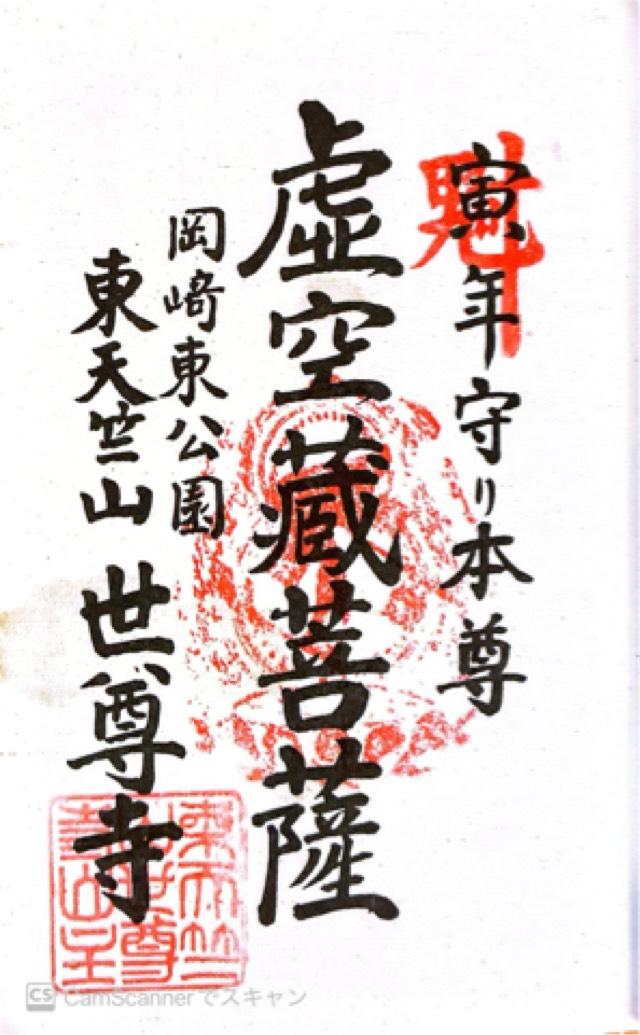 寅年守り本尊
虚空蔵菩薩
岡崎東公園
東天竺山 世尊寺
CS CamScannerでスキャン